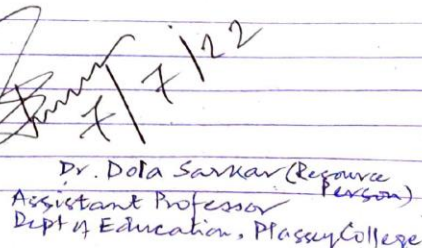 7/7/22
Dr. Dola Sarkar (Resource
Person)
Assistant Professor
Dept of Education, Plassey College